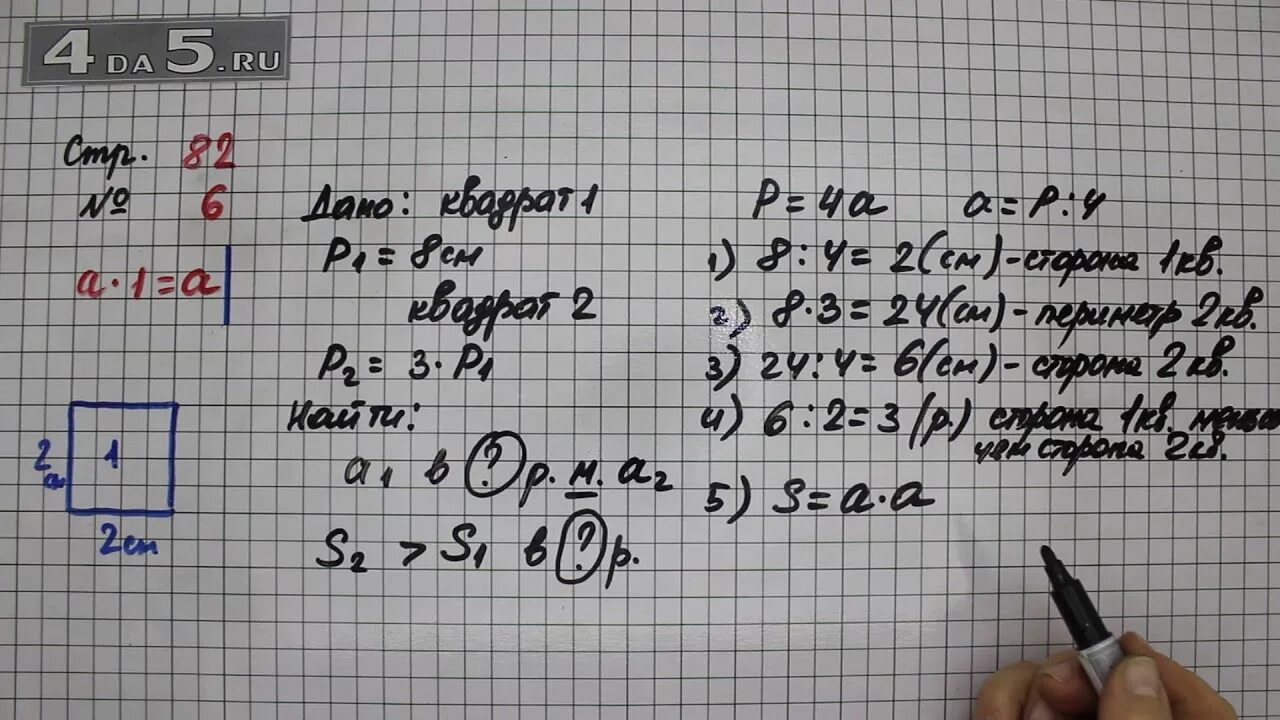 4DA5.RU
Стр. 82
№ 6
a·1=a
Дано: квадрат 1
P1 = 8см
квадрат 2
P2 = 3·P1
Найти:
a1 в ? р. м. a2
S2 > S1 в ? р.
1
2 см
2 см
P = 4a a = P:4
1) 8:4= 2(см)-сторона 1кв.
2) 8·3= 24(см)-периметр 2кв.
3) 24:4= 6(см)- сторона 2кв.
4) 6:2=3 (р.) сторона 1кв.
чем сторона 2кв.
5) S=a·a